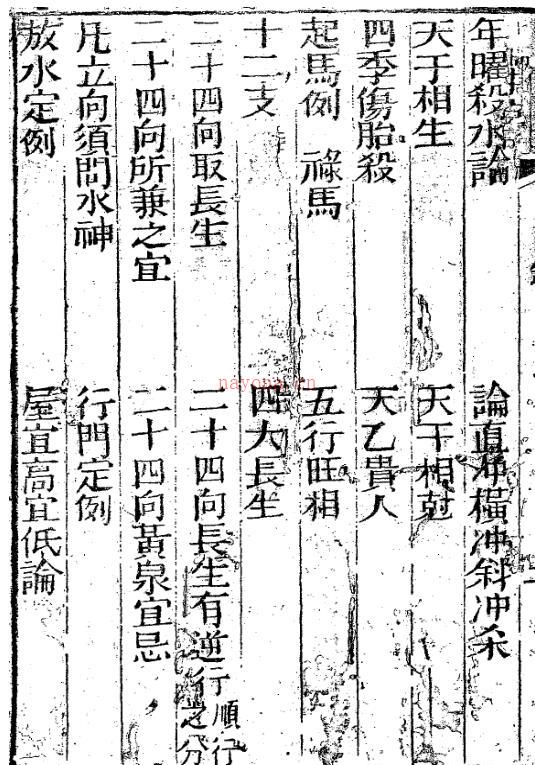 年曜殺水訣　論直冲橫冲斜冲杀
天干相生　天干相尅
四季傷胎殺　天乙貴人
起馬例　祿馬　五行旺相
十二支　四大長生
二十四向取長生　二十四向長生有逆行順行之分
二十四向所兼之宜　二十四向黃泉宜忌
凡立向須問水神　行門定例
放水定例　屋宜高宜低論